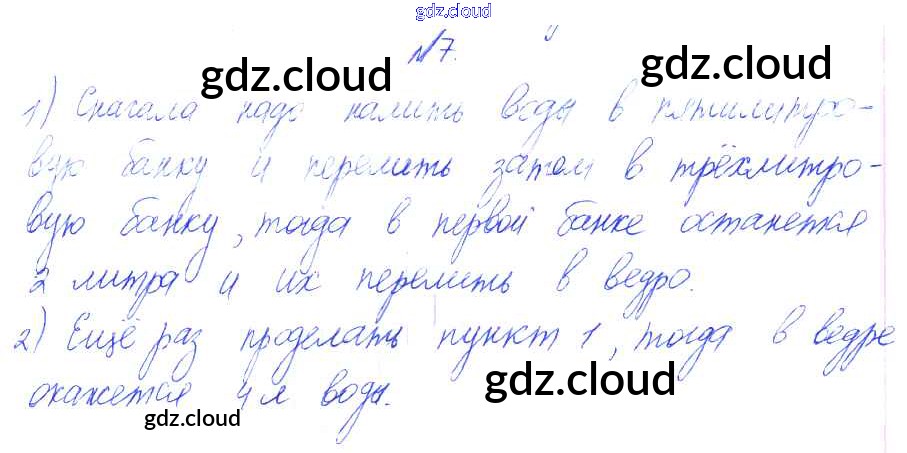 gdz.cloud
№7.
gdz.cloud gdz.cloud
1) Сначала надо налить воды в пятилитро-
вую банку и перелить затем в трёхлитро-
вую банку, тогда в первой банке останется
2 литра и их перелить в ведро.
2) Ещё раз проделать пункт 1, тогда в ведре
окажется 4 л воды.
gdz.cloud
gdz.cloud